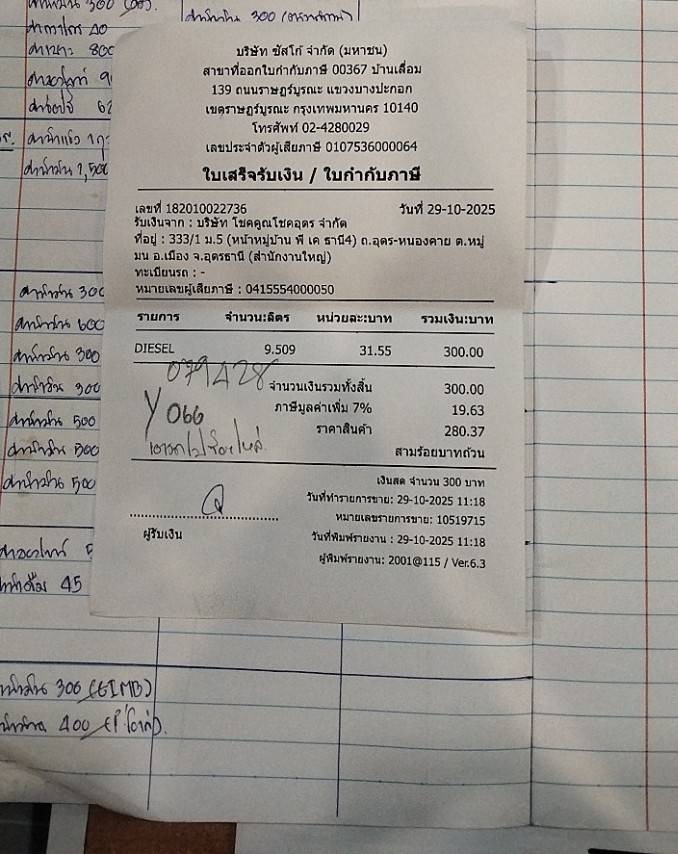 300
ค่าน้ำมัน 300
40
800
62
1,500
ค่าน้ำมัน 300
ค่าน้ำมัน 600
ค่าน้ำมัน 300
ค่าน้ำมัน 300
ค่าน้ำมัน 500
ค่าน้ำมัน 300
ค่าน้ำมัน 500
45
300
400
บริษัท ซัสโก้ จำกัด (มหาชน)
สาขาที่ออกใบกำกับภาษี 00367 บ้านเลื่อม
139 ถนนราษฎร์บูรณะ แขวงบางปะกอก
เขตราษฎร์บูรณะ กรุงเทพมหานคร 10140
โทรศัพท์ 02-4280029
เลขประจำตัวผู้เสียภาษี 0107536000064
ใบเสร็จรับเงิน / ใบกำกับภาษี
เลขที่ 182010022736 วันที่ 29-10-2025
รับเงินจาก : บริษัท โชคคูณโชคอุดร จำกัด
ที่อยู่ : 333/1 ม.5 (หน้าหมู่บ้าน พี เค ธานี4) ถ.อุดร-หนองคาย ต.หมู
มน อ.เมือง จ.อุดรธานี (สำนักงานใหญ่)
ทะเบียนรถ : -
หมายเลขผู้เสียภาษี : 0415554000050
รายการ จำนวน:ลิตร หน่วยละ:บาท รวมเงิน:บาท
DIESEL 9.509 31.55 300.00
079428
จำนวนเงินรวมทั้งสิ้น 300.00
Y066
ภาษีมูลค่าเพิ่ม 7% 19.63
ราคาสินค้า 280.37
สามร้อยบาทถ้วน
เงินสด จำนวน 300 บาท
วันที่ทำรายการขาย: 29-10-2025 11:18
หมายเลขรายการขาย: 10519715
ผู้รับเงิน
วันที่พิมพ์รายงาน : 29-10-2025 11:18
ผู้พิมพ์รายงาน: 2001@115 / Ver.6.3